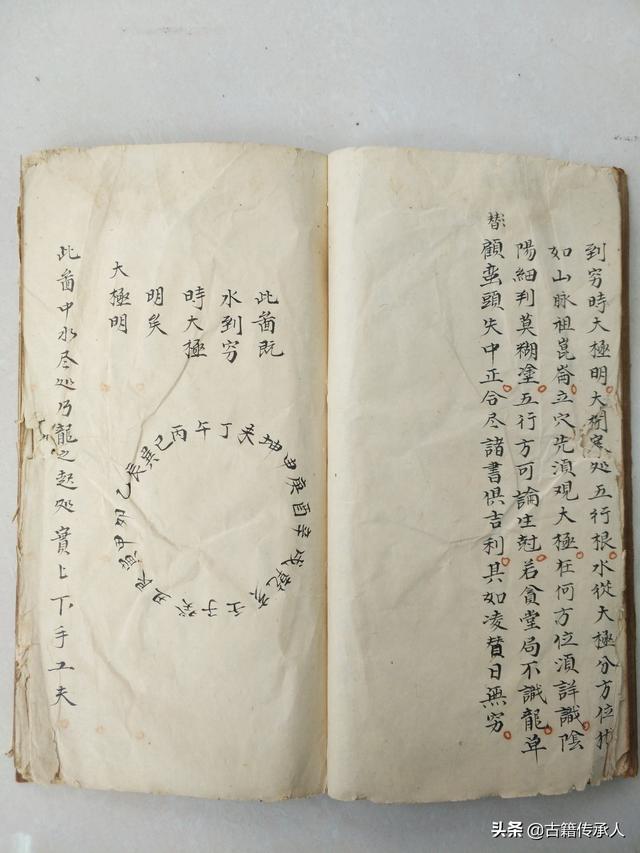 到穷時大極明大处五行根水從大極分方位
如山脉祖崑崙立穴先須观大極在何方位須詳識陰
陽細判莫糊塗五行方可論生尅若貪堂局不識龍單
顧蛮頭失中正合尽諸書俱吉利其如凌替日無穷
替
此啚既
水到穷
時大極
明矣
大極明
丙午丁未坤申庚酉辛戌乾亥壬子癸丑艮寅甲卯乙辰巽巳
此啚中水尽处乃龍之起处實上下手工夫
头条 @古籍传承人